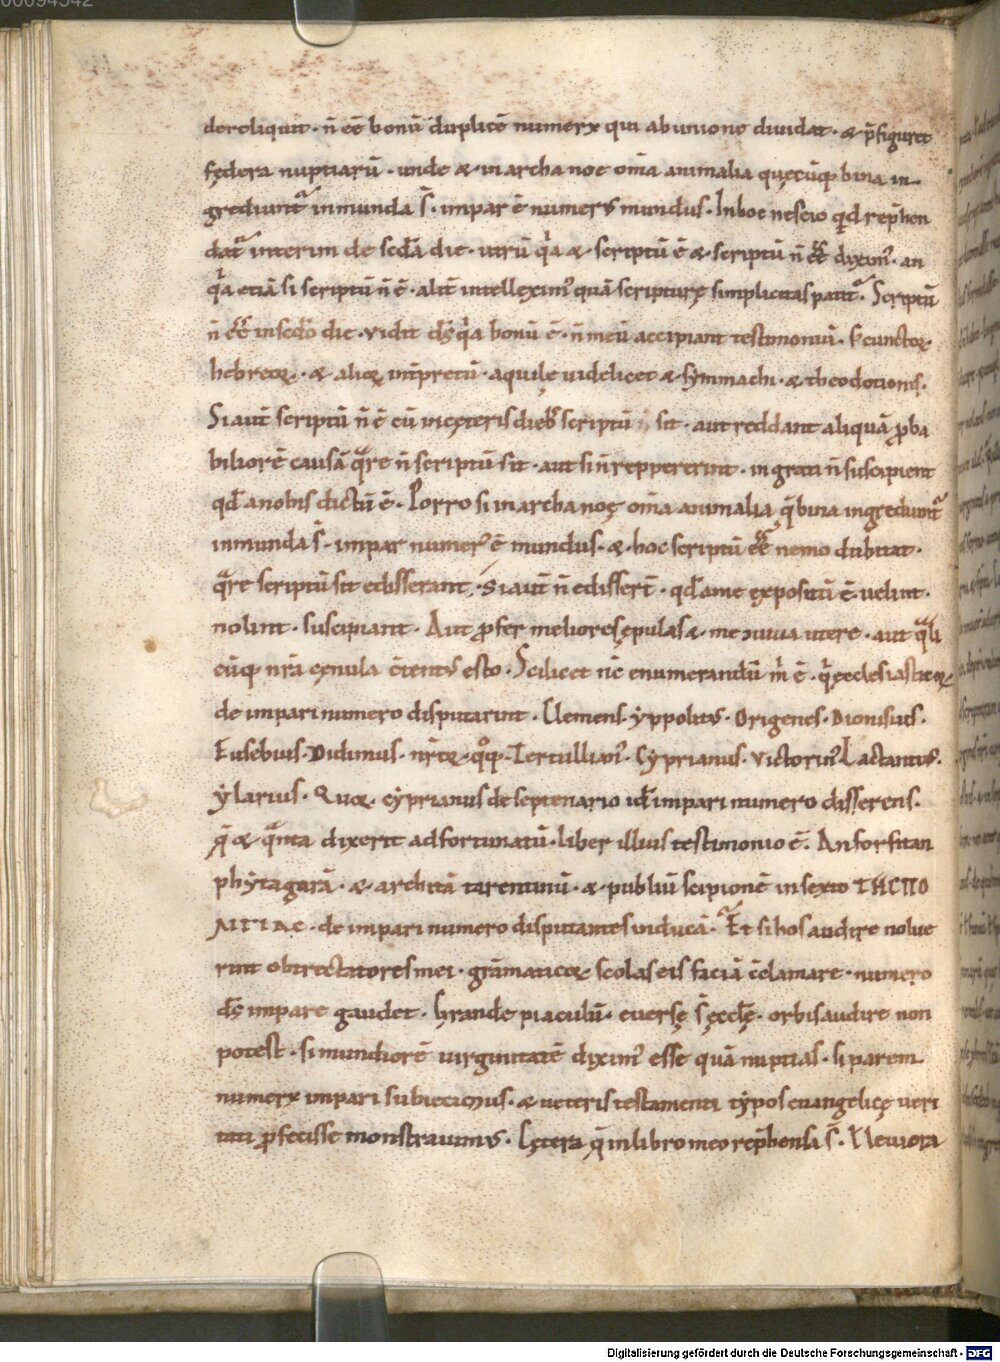 00094542
dereliquit · n̄ eē bonū duplicē numerū qui abunione diuidat · & p̄figuret
fędera nuptiarū · unde & in archa noe om̄ia animalia quęcūq; bina in-
grediunt̄ inmunda s̄ · impar ē numerus mundus · In hoc nescio qd̄ rep̄hen
dat̄ interim de scd̄a die · utrū q̄a & scriptū ē & scriptū n̄ eē dixim' · an
q̄a etiā si scriptū n̄ ē · alit̄ intellexim' quā scripturę simplicitas patit̄ · Scriptū
n̄ eē in scd̄o die · vidit ds̄ q̄a bonū ē · n̄ meū accipiant testimoniū · s; cunctoꝝ
hebreoꝝ · & alioꝝ int̄pretū · aquilę uidelicet & symmachi · & theodotionis ·
Si aut̄ scriptū n̄ ē cū in cęteris dieb; scriptū sit · aut reddant aliquā ꝓba
biliorē causā q̄re n̄ scriptū sit · aut si n̄ reppererint · ingrati n̄ suscipient
qd̄ anobis dictū ē · Porro si in archa noę om̄ia animalia q̄ bina ingrediunt̄
inmunda s̄ · impar numer' ē mundus · & hoc scriptū eē nemo dubitat ·
q̄re scriptū sit edisserant · Si aut̄ n̄ edissert̄ · qd̄ ame expositū ē · uelint ·
nolint · suscipiant · Aut ꝓfer meliores epulas & me uiua utere · aut q̄li
cūq; nr̄a cęnula c̄tentus esto · Scilicet nc̄ enumerandū m̄ ē · q̄ ęcclesiasticoꝝ
de impari numero disputarint · Clemens · yppolitus · Origenes · Dionisius ·
Eusebius · Didimus · nr̄oꝝ q̊q; · Tertullian' · Cyprianus · Victorin' Lactantius ·
ylarius · Quoꝝ · cyprianus de septenario id ē impari numero disserens ·
q̄ & q̄nta dixerit ad fortunatū · liber illius testimonio ē · An forsitan
phytagorā · & architā tarentinū · & publiū scipionē in sexto THCΠO
ΛITIAC · de impari numero disputantes inducā · Et si hos audire nolue
rint obtrectatores mei · grāmaticoꝝ scolas eis faciā c̄clamare · numero
ds̄ impare gaudet · Grande piaculū · euersę s̄ ęcclę̄ · orbis audire non
potest · si mundiorē uirginitatē dixim' esse quā nuptias · si parem
numerū impari subiecimus · & ueteris testamenti typos euangelicę ueri
tati ꝓfecisse monstrauimus · Cętera q̄ in libro meo rep̄hensa s̄ · l leuiora
Digitalisierung gefördert durch die Deutsche Forschungsgemeinschaft · DFG